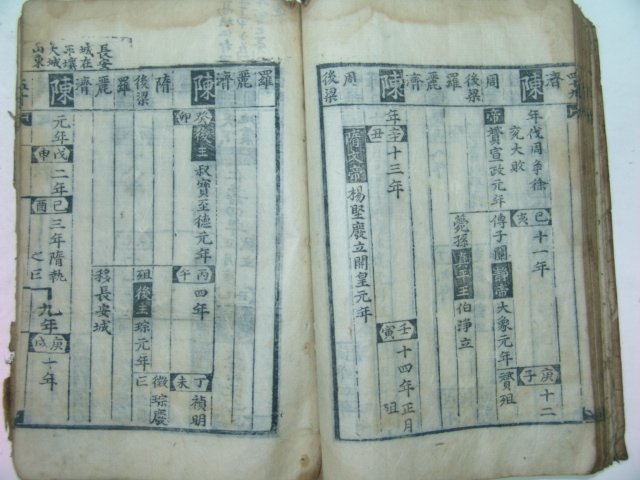 濟
陳
周
後梁
羅
麗
濟
陳
周
後梁
年伐周爭徐兗大敗
己亥
十一年
庚子
十二
帝贇宣政元年
傳子闡靜帝大象元年
贇殂
薨孫真平王伯淨立
年
辛丑
十三年
壬寅
十四年正月
殂
隋文帝楊堅廢立開皇元年
長安城在平壤大城山東
羅
麗
濟
陳
隋
後梁
羅
麗
濟
陳
癸卯
後主叔寶至德元年
丙午
四年
丁未
禎明
殂後主琮元年
徵琮廢
移長安城
元年
戊申
二年
己酉
三年隋執之
九年
庚戌
十年